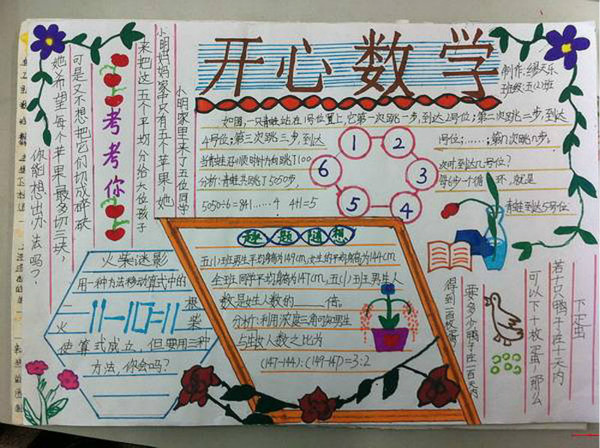 开心数学
制作:缪天乐
班级:五(1)班
如图,一只青蛙站在1号位置上,它第一次跳一步,到达2号位;第二次跳二步,到达
4号位;第三次跳三步,到达
1号位;……;第n次跳n步,
当青蛙
跳了100
次时到达几号位?
分析:青蛙共跳了5050步,
每6步一个循环,就是
5050÷6=841……4 4+1=5
青蛙到达5号位
1
2
3
4
5
6
考考你
小明家里来了五位同学
小明妈妈家中只有五个苹果,她
来把这五个平均分给六位孩子
可是又不想把它们切成碎块
她希望每个苹果最多切三块,
你能想出办法吗?
火柴谜影
用一种办法移动算式中的
一根火柴
使算式成立,但要用三种
方法,你会吗?
趣题遐想
五(1)班男生平均身高为149cm,女生的平均身高为144cm
全班同学平均身高为147cm,五(1)班男生人
数是女生人数的___倍。
分析:利用浓度三角可知男生
与女生人数之比为
(147-144):(149-147)=3:2
下蛋
若十只鸭子在十天内
可以下十枚蛋,那么
要多少鸭子在一百天内
得到一百枚蛋?